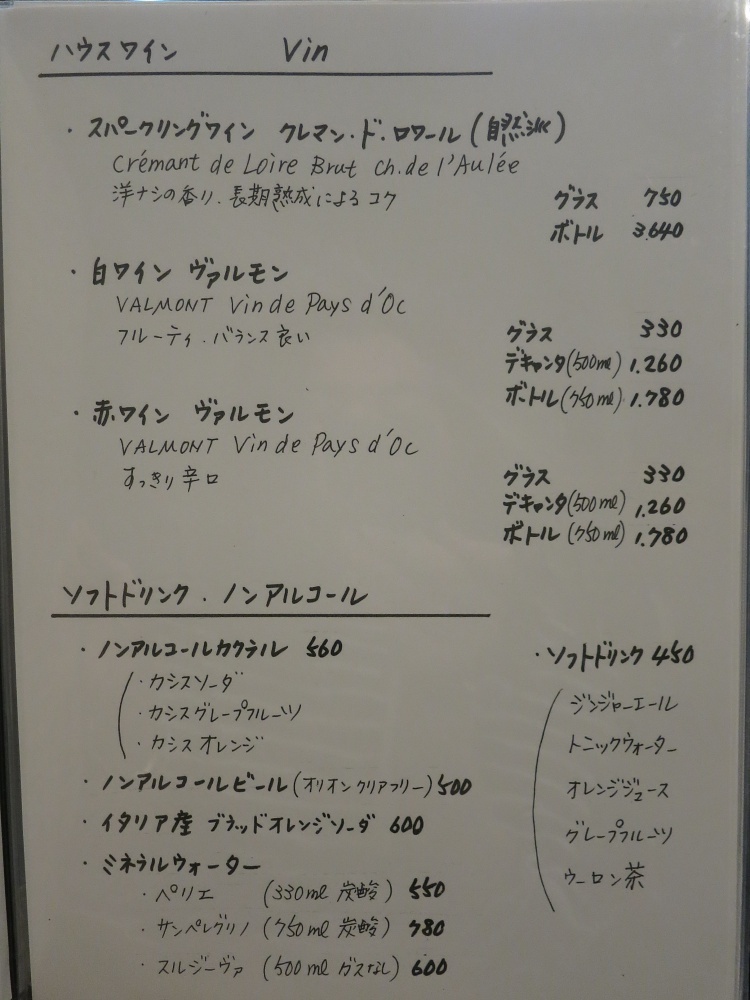 ハウスワイン Vin
・スパークリングワイン クレマン・ド・ロワール(自然派)
Crémant de Loire Brut ch. de l'Aulée
洋ナシの香り、長期熟成によるコク
グラス 750
ボトル 3.640
・白ワイン ヴァルモン
VALMONT Vin de Pays d'Oc
フルーティ、バランス良い
グラス 330
デキャンタ(500ml) 1.260
ボトル(750ml) 1.780
・赤ワイン ヴァルモン
VALMONT Vin de Pays d'Oc
すっきり辛口
グラス 330
デキャンタ(500ml) 1.260
ボトル(750ml) 1.780
ソフトドリンク、ノンアルコール
・ノンアルコールカクテル 560
・カシスソーダ
・カシスグレープフルーツ
・カシスオレンジ
・ノンアルコールビール(オリオンクリアフリー) 500
・イタリア産 ブラッドオレンジソーダ 600
・ミネラルウォーター
・ペリエ (330ml 炭酸) 550
・サンペレグリノ (750ml 炭酸) 780
・スルジーヴァ (500ml ガスなし) 600
・ソフトドリンク 450
ジンジャーエール
トニックウォーター
オレンジジュース
グレープフルーツ
ウーロン茶